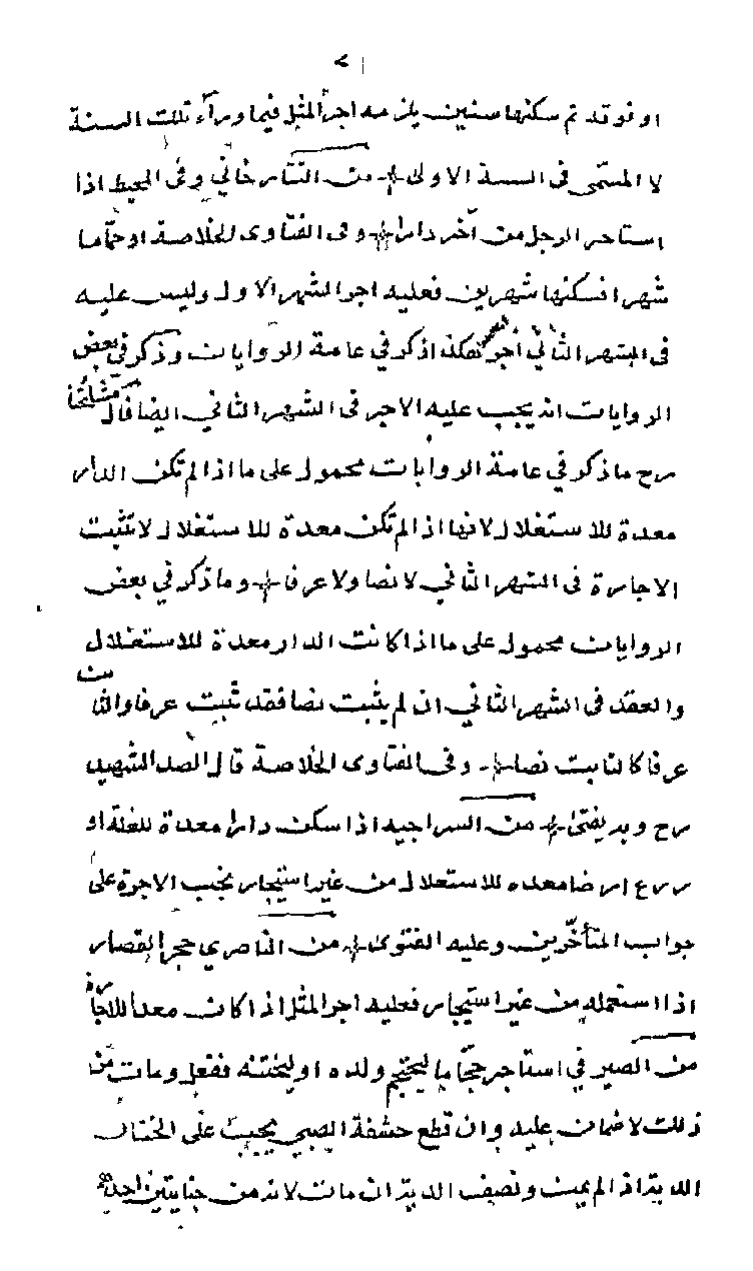 او فوقه ثم سكنها سنين يلزمه اجر المثل فيما وراء تلك السنة
لا المسمى فى السنة الاولى من التتارخانى وفى المحيط اذا
استاجر الرجل من آخر دارا وفى الفتاوى الخلاصة او حمّاما
شهرا فسكنها شهرين فعليه اجر الشهر الاول وليس عليه
فى الشهر الثانى أجر هكذا ذكر في عامة الروايات وذكر فى بعض
الروايات انه يجب عليه الاجر فى الشهر الثاني ايضا قال مشائخنا
رح ما ذكر في عامة الروايات محمول على ما اذا لم تكن الدار
معدة للاستغلال لانها اذا لم تكن معدة للاستغلال لا تثبت
الاجارة فى الشهر الثاني لا نصا ولا عرفا وما ذكر في بعض
الروايات محمول على ما اذا كانت الدار معدة للاستغلال
والعقد فى الشهر الثاني ان لم يثبت نصا فقد ثبت عرفا والثابت
عرفا كالثابت نصا وفى الفتاوى الخلاصة قال الصدر الشهيد
رح وبه يفتى من السراجيه اذا سكن دارا معدة للغلة او
زرع ارضا معده للاستغلال من غير استيجار يجب الاجرة على
جواب المتأخّرين وعليه الفتوى من الناصري حجر القصار
اذا استعمله من غير استيجار فعليه اجر المثل اذا كان معدا للاجارة
من الصيرفي استاجر حجّاما ليحتجم ولده او ليختنه ففعل ومات من
ذلك لا ضمان عليه وان قطع حشفة الصبي يجب على الختان
الدية اذا لم يمت ونصف الدية ان مات لانه من جنايتين احديهما